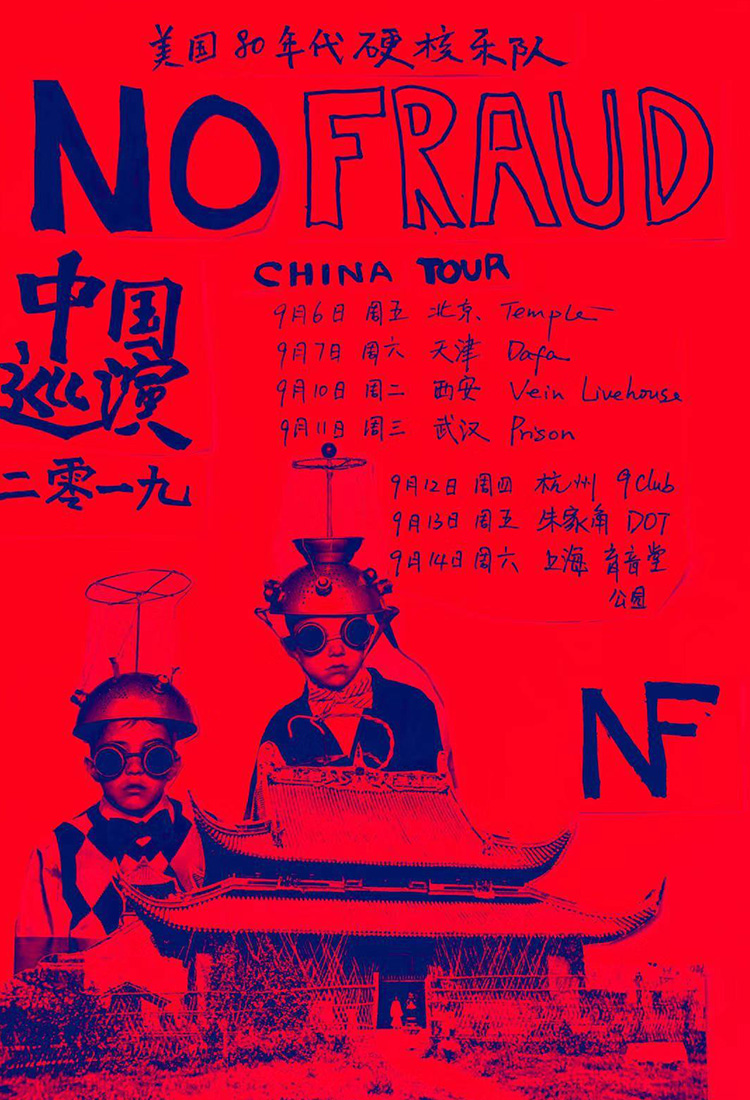 美国80年代硬核乐队
NO FRAUD
中国
巡演
二零一九
CHINA TOUR
9月6日 周五 北京 Temple
9月7日 周六 天津 Dafa
9月10日 周二 西安 Vein Livehouse
9月11日 周三 武汉 Prison
9月12日 周四 杭州 9Club
9月13日 周五 朱家角 DOT
9月14日 周六 上海 育音堂
公园
NF